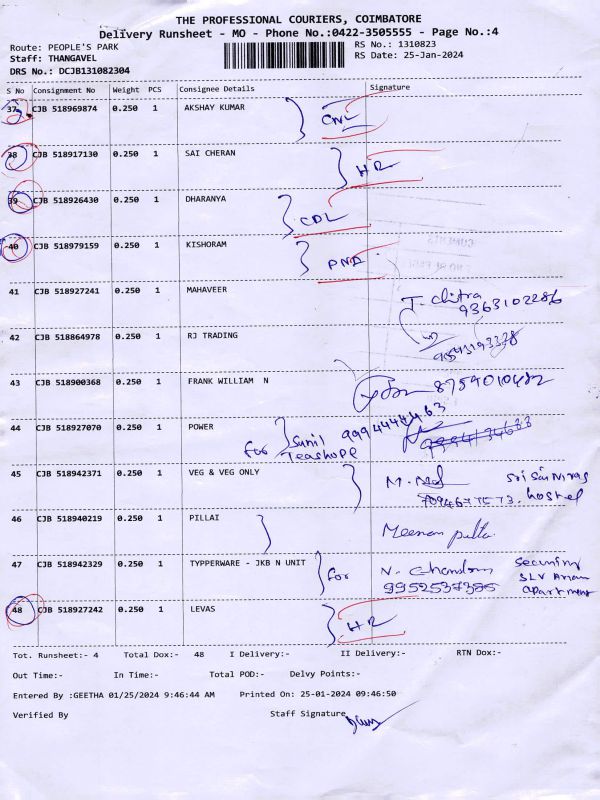 THE PROFESSIONAL COURIERS, COIMBATORE
Delivery Runsheet - MO - Phone No.:0422-3505555 - Page No.:4
Route: PEOPLE'S PARK
RS No.: 1310823
Staff: THANGAVEL
RS Date: 25-Jan-2024
DRS No.: DCJB131082304
S No Consignment No Weight PCS Consignee Details Signature
37 CJB 518969874 0.250 1 AKSHAY KUMAR CNL
38 CJB 518917130 0.250 1 SAI CHERAN HR
39 CJB 518926430 0.250 1 DHARANYA CDL
40 CJB 518979159 0.250 1 KISHORAM PND
41 CJB 518927241 0.250 1 MAHAVEER T. chitra
9363102286
42 CJB 518864978 0.250 1 RJ TRADING
43 CJB 518900368 0.250 1 FRANK WILLIAM N 8759010482
44 CJB 518927070 0.250 1 POWER for Sunil
Teashope
45 CJB 518942371 0.250 1 VEG & VEG ONLY
hostel
46 CJB 518940219 0.250 1 PILLAI
47 CJB 518942329 0.250 1 TYPPERWARE - JKB N UNIT for
9952537385
apartment
48 CJB 518927242 0.250 1 LEVAS HR
Tot. Runsheet:- 4 Total Dox:- 48 I Delivery:- II Delivery:- RTN Dox:-
Out Time:- In Time:- Total POD:- Delvy Points:-
Entered By :GEETHA 01/25/2024 9:46:44 AM Printed On: 25-01-2024 09:46:50
Verified By Staff Signature